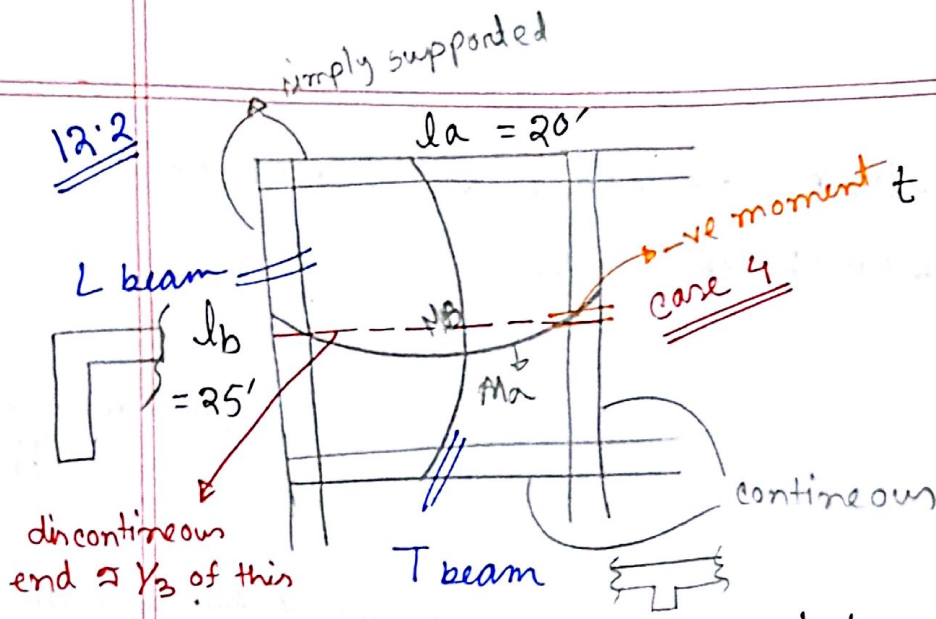 simply supported
12.2
la = 20'
-ve moment t
L beam
case 4
lb
= 25'
Ma
contineous
discontineous
end 1/3 of this
T beam